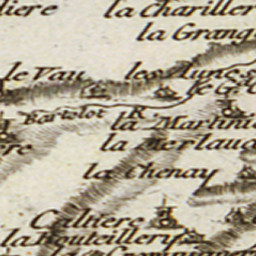 liere
la Chariller
la Grang
le Vau
les Aunes
le G
Bertolot R
la Martinie
la Merlaud
re
la Chenay
Caltiere
la Bouteillery